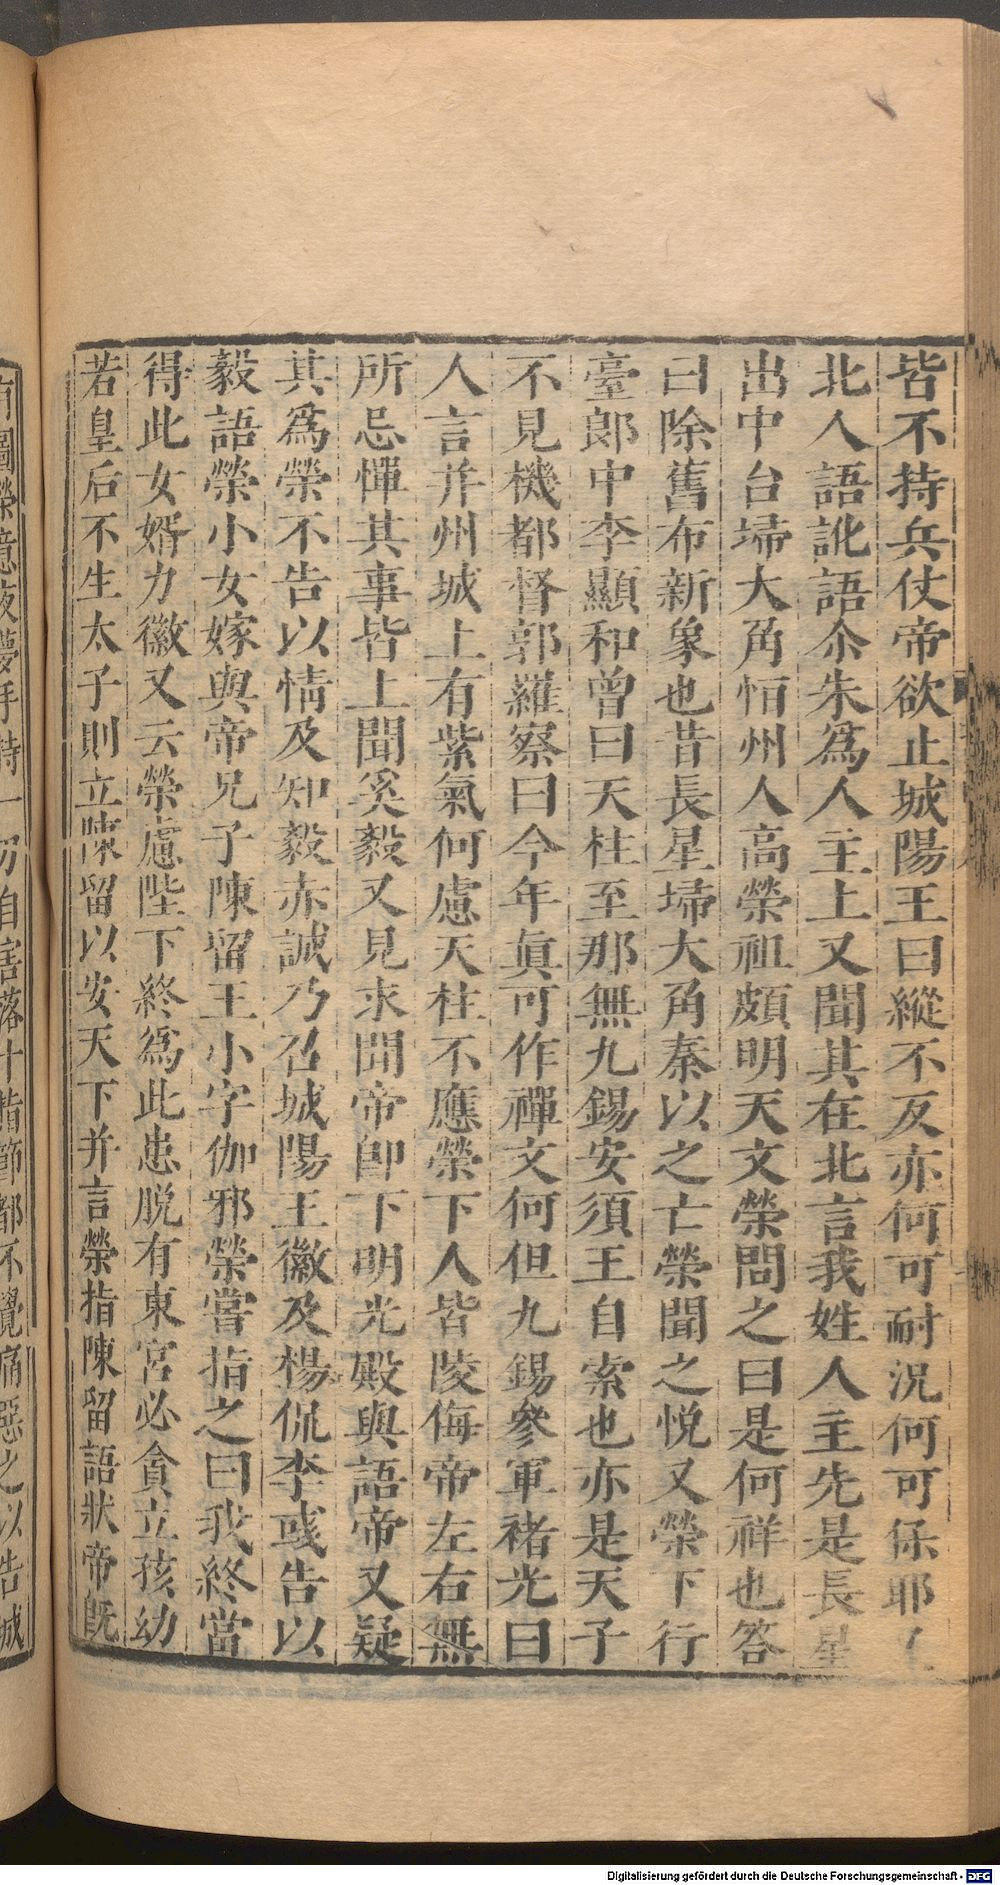 皆不持兵仗帝欲止城陽王曰縱不反亦何可耐況何可保耶
北人語訛語尒朱為人主上又聞其在北言我姓人主先是長星
出中台埽大角恒州人高榮祖頗明天文榮問之曰是何祥也答
曰除舊布新象也昔長星埽大角秦以之亡榮聞之悅又榮下行
臺郎中李顯和曾曰天柱至那無九錫安須王自索也亦是天子
不見機都督郭羅察曰今年眞可作禪文何但九錫參軍褚光曰
人言并州城上有紫氣何慮天柱不應榮下人皆陵侮帝左右無
所忌憚其事皆上聞奚毅又見求聞帝卽下明光殿與語帝又疑
其爲榮不告以情及知毅赤誠乃召城陽王徽及楊侃李彧告以
毅語榮小女嫁與帝兄子陳留王小字伽邪榮嘗指之曰我終當
得此女婿力徽又云榮慮陛下終爲此患脫有東宮必貪立孩幼
若皇后不生太子則立陳留以安天下并言榮指陳留語狀帝旣
圖榮意夜夢手持一刀自害落十指節都不覺痛惡之以告城
Digitalisierung gefördert durch die Deutsche Forschungsgemeinschaft - DFG